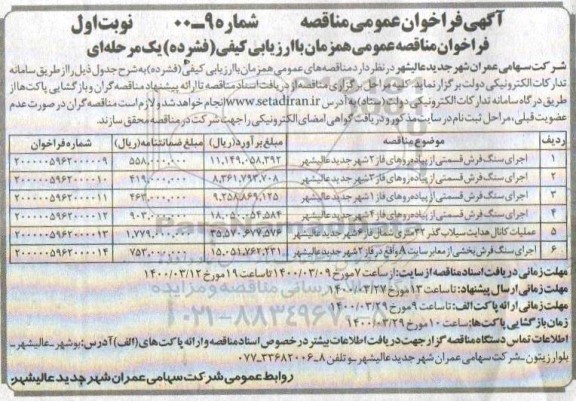 آگهی فراخوان عمومی مناقصه شماره ۹-۰۰ نوبت اول
فراخوان مناقصه عمومی همزمان با ارزیابی کیفی (فشرده) یک مرحله‌ای
شرکت سهامی عمران شهر جدید عالیشهر در نظر دارد مناقصه‌های عمومی همزمان با ارزیابی کیفی (فشرده) به شرح جدول ذیل را از طریق سامانه
تدارکات الکترونیکی دولت برگزار نماید. کلیه مراحل برگزاری مناقصه از دریافت اسناد مناقصه تا ارائه پیشنهاد مناقصه گران و بازگشایی پاکت‌ها از
طریق درگاه سامانه تدارکات الکترونیکی دولت (ستاد) به آدرس www.setadiran.ir انجام خواهد شد و لازم است مناقصه گران در صورت عدم
عضویت قبلی، مراحل ثبت نام در سایت مذکور و دریافت گواهی امضای الکترونیکی را جهت شرکت در مناقصه محقق سازند.
ردیف موضوع مناقصه مبلغ برآورد (ریال) مبلغ ضمانتنامه (ریال) شماره فراخوان
۱ اجرای سنگ فرش قسمتی از پیاده‌روهای فاز ۲ شهر جدید عالیشهر ۱۱,۱۴۹,۰۵۸,۳۹۲ ۵۵۸,۰۰۰,۰۰۰ ۲۰۰۰۰۰۵۹۶۲۰۰۰۰۰۹
۲ اجرای سنگ فرش قسمتی از پیاده‌روهای فاز ۳ شهر جدید عالیشهر ۸,۳۶۱,۷۹۳,۷۰۸ ۴۱۹,۰۰۰,۰۰۰ ۲۰۰۰۰۰۵۹۶۲۰۰۰۰۱۰
۳ اجرای سنگ فرش قسمتی از پیاده‌روهای فاز ۱ شهر جدید عالیشهر ۹,۲۵۸,۸۶۹,۱۲۵ ۴۶۳,۰۰۰,۰۰۰ ۲۰۰۰۰۰۵۹۶۲۰۰۰۰۱۱
۴ اجرای سنگ فرش قسمتی از پیاده‌روهای فاز ۴ شهر جدید عالیشهر ۱۸,۰۵۰,۰۵۴,۵۸۴ ۹۰۳,۰۰۰,۰۰۰ ۲۰۰۰۰۰۵۹۶۲۰۰۰۰۱۲
۵ عملیات کانال هدایت سیلاب گذر ۳۲ متری شمال فاز ۶ شهر جدید عالیشهر ۳۵,۵۷۰,۶۷۷,۵۷۶ ۱,۷۷۹,۰۰۰,۰۰۰ ۲۰۰۰۰۰۵۹۶۲۰۰۰۰۱۳
۶ اجرای سنگ فرش بخشی از معابر سایت ۸ واقع در فاز ۲ شهر جدید عالیشهر ۱۵,۰۵۱,۷۶۲,۴۳۱ ۷۵۳,۰۰۰,۰۰۰ ۲۰۰۰۰۰۵۹۶۲۰۰۰۰۱۴
مهلت زمانی دریافت اسناد مناقصه از سایت: از ساعت ۷ مورخ ۱۴۰۰/۰۳/۰۹ تا ساعت ۱۹ مورخ ۱۴۰۰/۰۳/۱۲
مهلت زمانی ارسال پیشنهاد: تا ساعت ۱۳ مورخ ۱۴۰۰/۰۳/۲۷
مهلت زمانی ارائه پاکت الف: تا ساعت ۹ مورخ ۱۴۰۰/۰۳/۲۹
زمان بازگشایی پاکت ها: ساعت ۱۰ مورخ ۱۴۰۰/۰۳/۲۹
۰۲۱-۸۸۳۴۹۶۷۰-۵
اطلاعات تماس دستگاه مناقصه گزار جهت دریافت اطلاعات بیشتر در خصوص اسناد مناقصه و ارائه پاکت های (الف) آدرس: بوشهر - عالیشهر -
بلوار زیتون - شرکت سهامی عمران شهر جدید عالیشهر - و تلفن ۸-۳۳۶۸۲۰۰۶-۰۷۷
روابط عمومی شرکت سهامی عمران شهر جدید عالیشهر